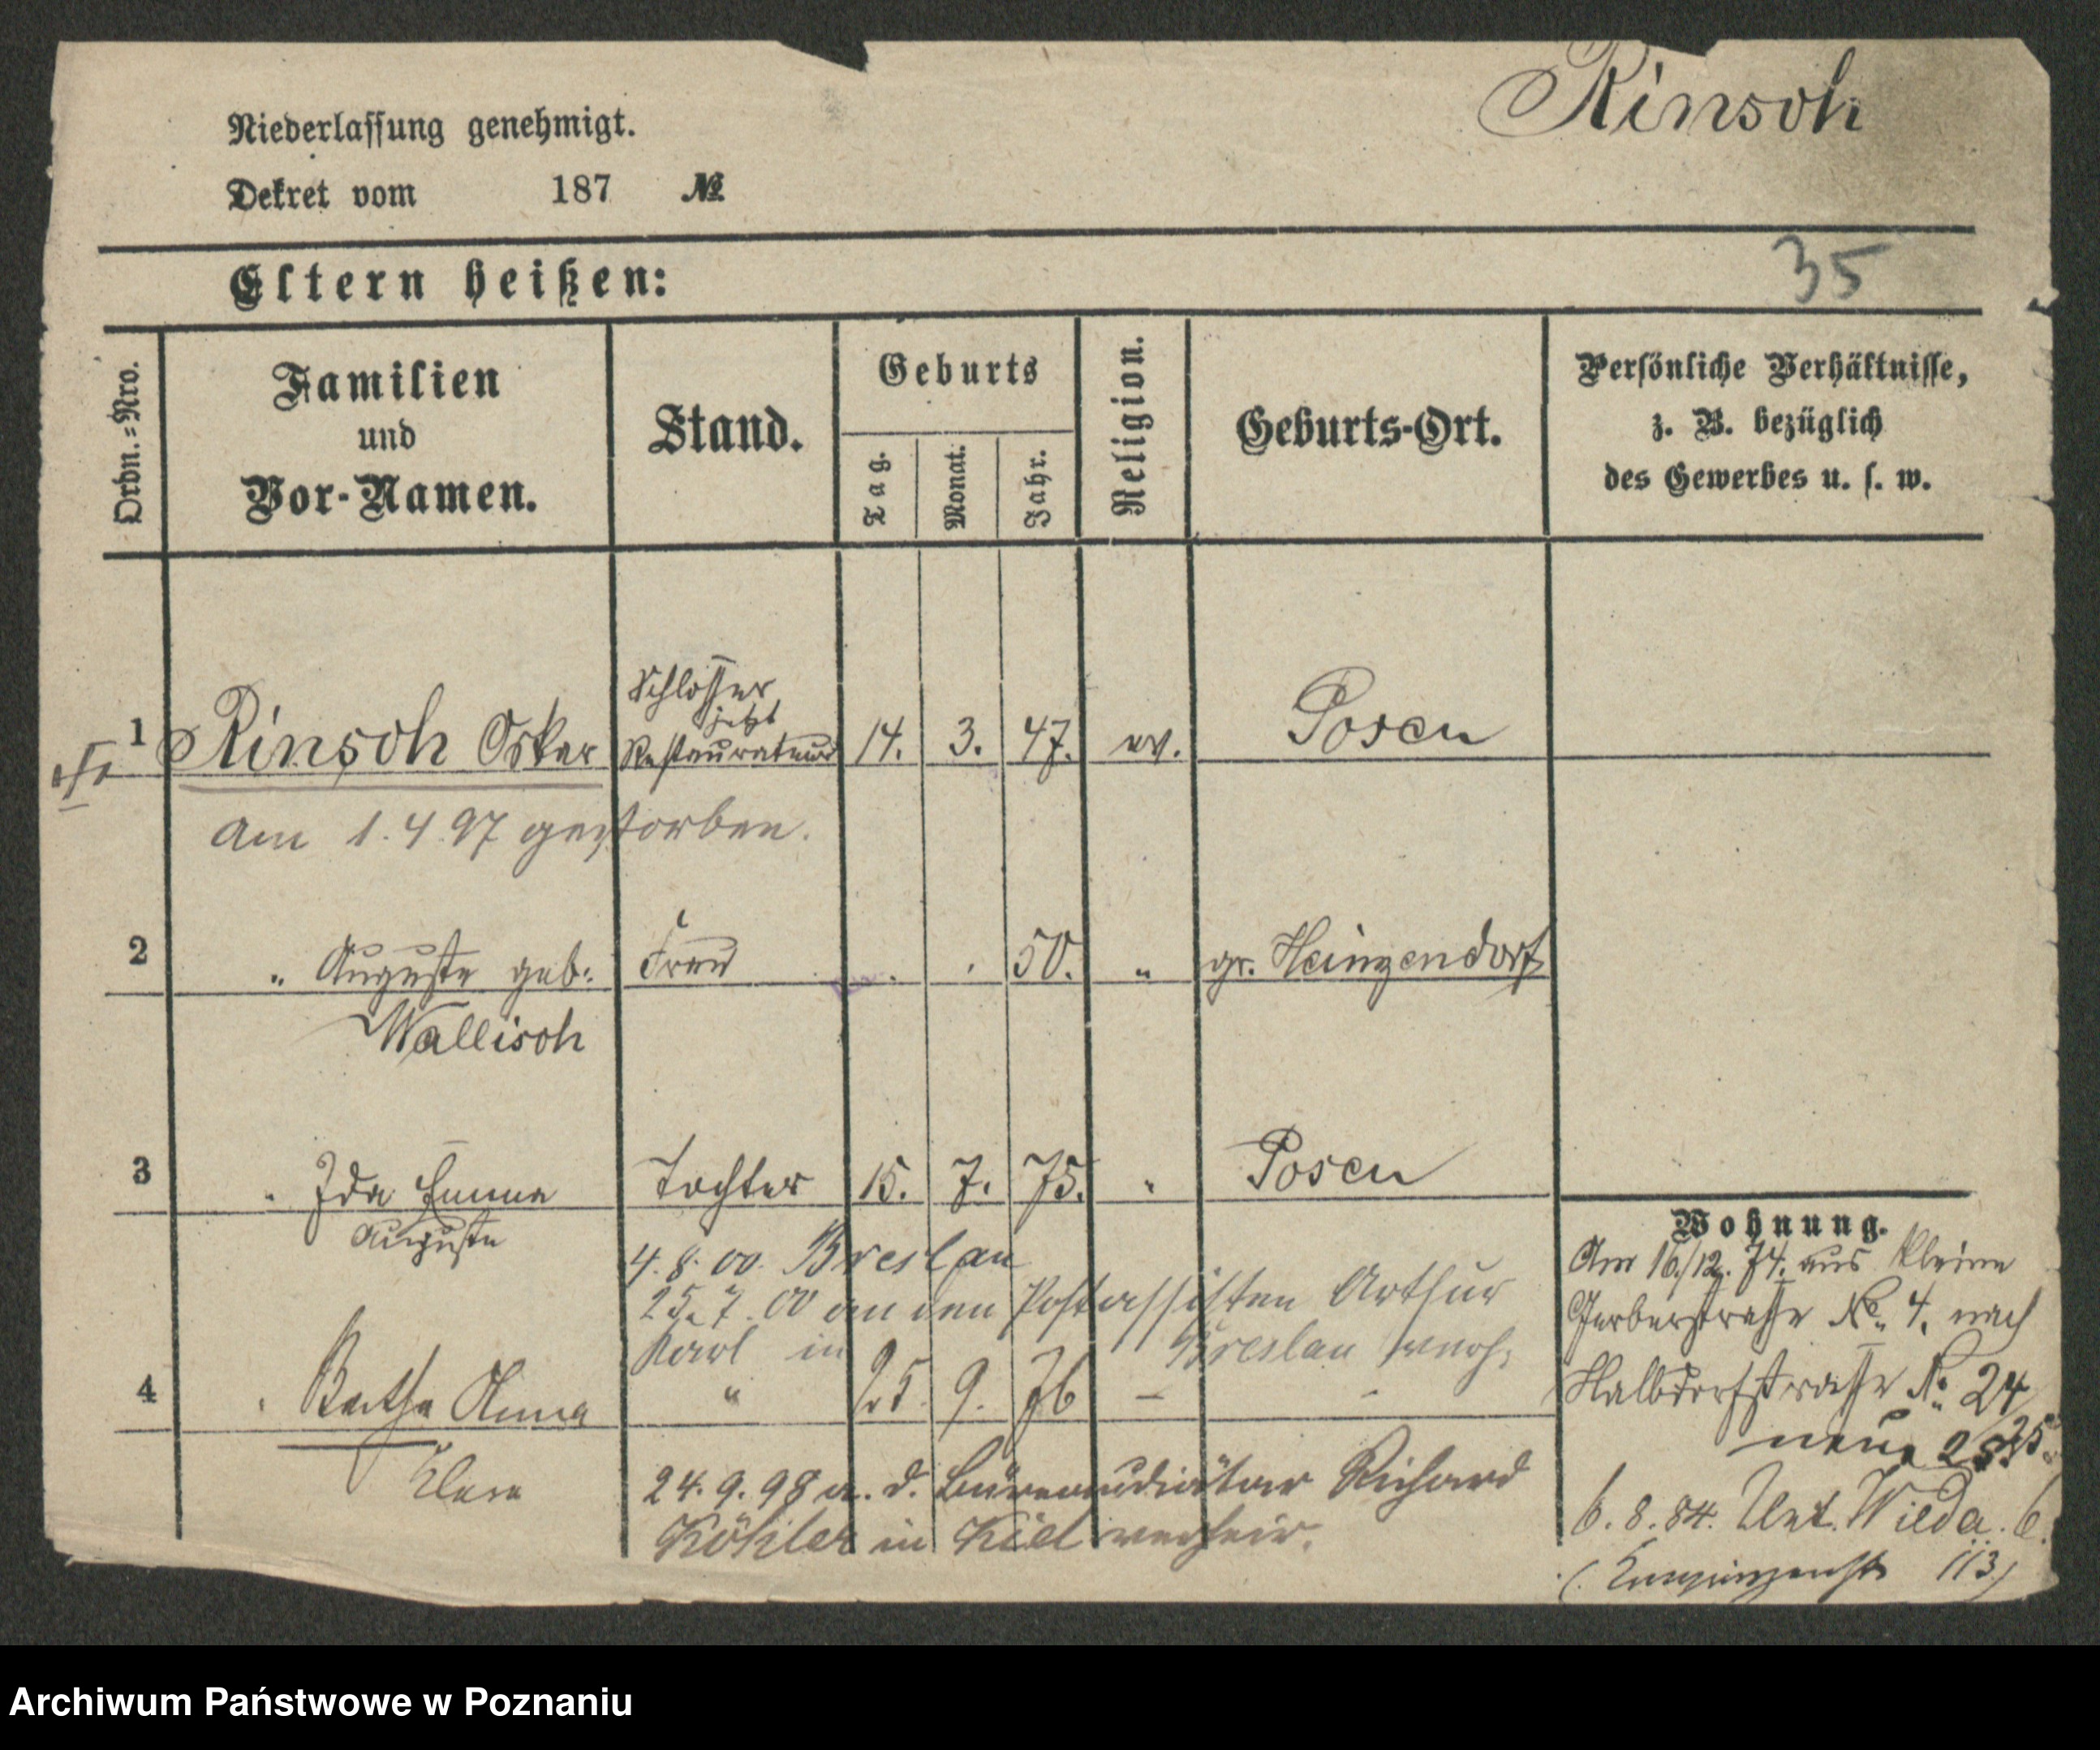 Rinsch
Niederlassung genehmigt.
Dekret vom 187 №
35
Eltern heißen:
Ordn.-Nro.
Familien
und
Vor-Namen.
Stand.
Geburts
Tag.
Monat.
Jahr.
Religion.
Geburts-Ort.
Persönliche Verhältnisse,
z. B. bezüglich
des Gewerbes u. s. w.
Schlosser
jetzt
1 Rinsch Oskar Restaurateur 14. 3. 47. ev. Posen
am 1.4.97 gestorben.
2 " Auguste geb. Frau 50. " gr. Heinzendorf
Wallisch
3 " Ida Emma Tochter 15. 7. 75. " Posen
Auguste
4.8.00. Breslau
25.7.00 an den Postassistenten Arthur
Karl in Breslau
4 " Bertha Anna " 25. 9. 76 – –
Clara
24.9.98 a. d. Büreaudiätar Richard
Köhler in Kiel verheir.
Wohnung.
Am 16./12. 74. aus Kleine
Gerberstraße No. 4. nach
Halbdorfstraße No. 24
neue 25
6.8.84. Unt. Wilda. 6.
(Kronprinzenstr 113)
Archiwum Państwowe w Poznaniu